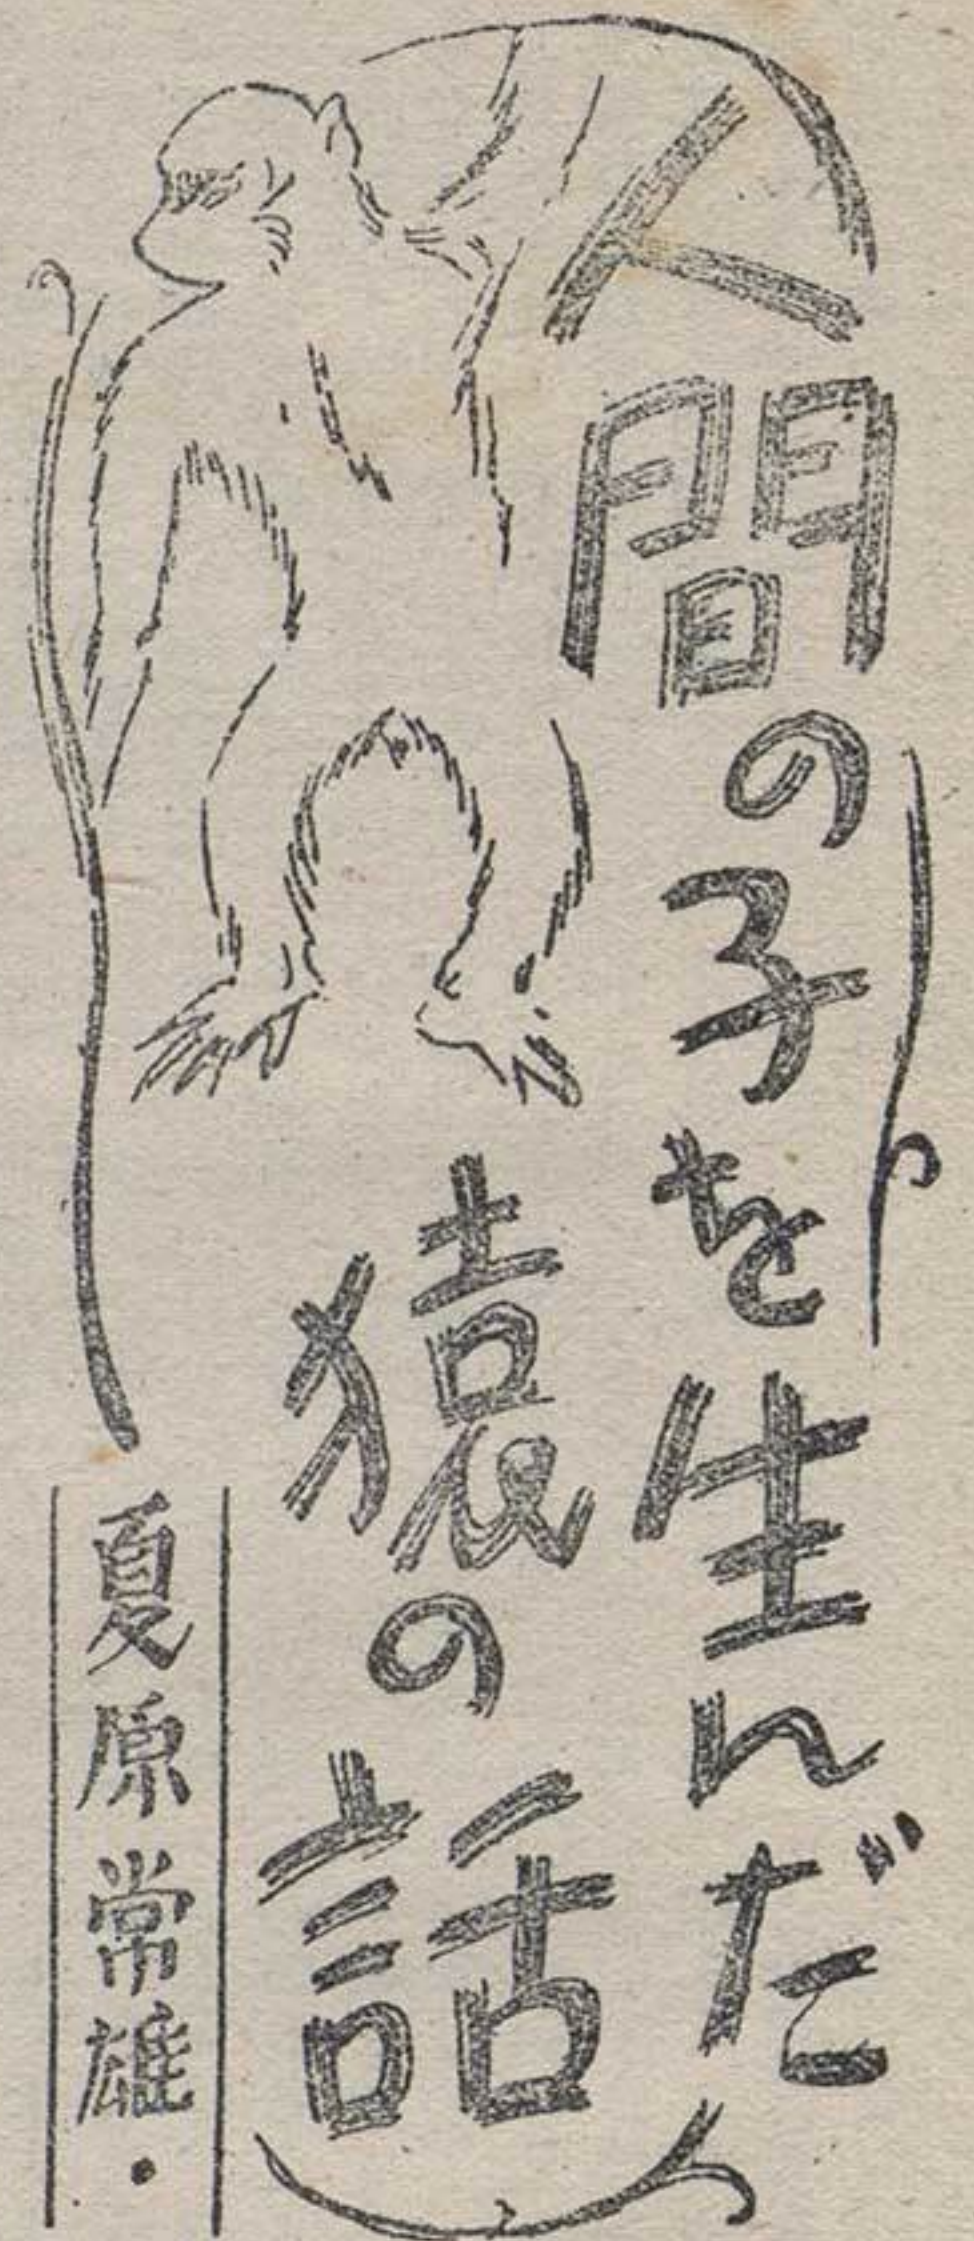 人間の子を生んだ
猿の話
夏原常雄・